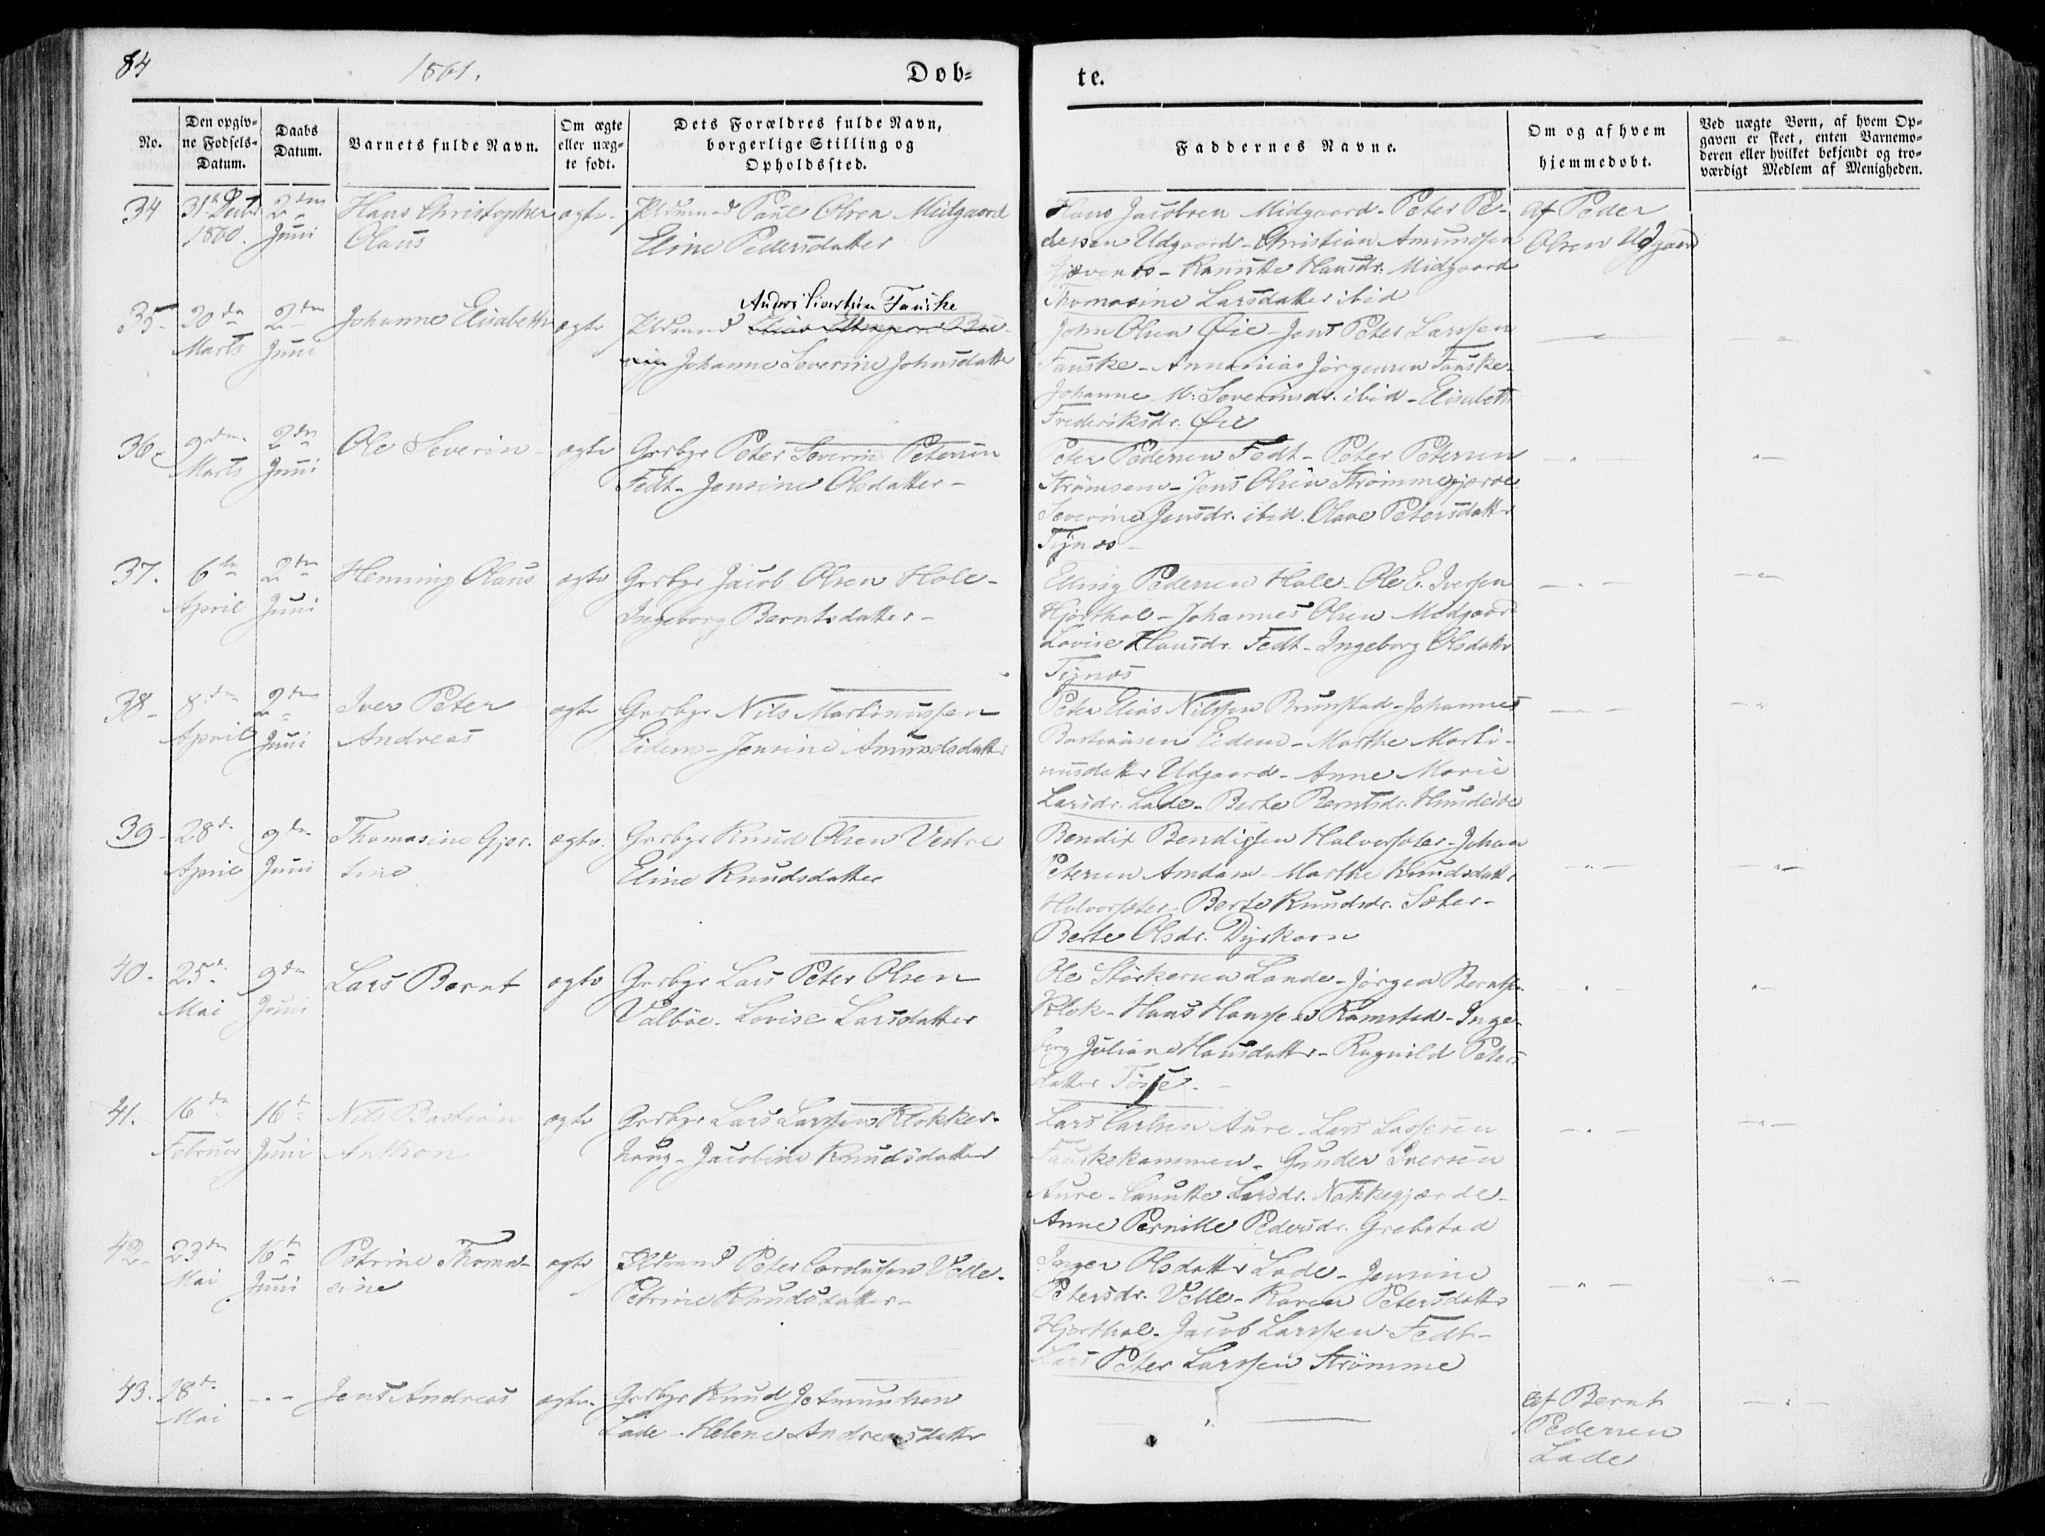 84
1861.
Dob=
te.
No.
Den opgiv=
ne Fodsels=
Datum.
Daabs
Datum.
Barnets fulde Navn.
Om ægte
eller uæg=
te født.
Dets Forældres fulde Navn,
borgerlige Stilling og
Opholdssted.
Faddernes Navne.
Om og af hvem
hjemmedobt.
Ved uægte Born, af hvem Op=
gaven er skeet, enten Barnemo=
deren eller hvilket bekjendt og tro=
værdigt Medlem af Menigheden.
34
31te Decbr
1860.
2den
Juni
Hans Christopher
Olaus
ægte
Pldsmnd Paul Olsen Midgaard
Eline Pedersdatter
Hans Jacobsen Midgaard - Peter Pe-
dersen Udgaard - Christian Amundsen
- Hansdr. Midgaard
Thomasine Larsdatter ibid
Af Peder
Olsen Udgaard
35.
20de
Marts
2den
Juni
Johanne Elisabeth
ægte
Anders Sivertsen Fauske
Pldsmnd
Johanne Severine Johnsdatter
John Olsen Øie - Jens Peter Larssen
Fauske - Annanias Jørgensen Fauske
Johanne M: Severinsdr. ibid - Elisabeth
Frederiksdr. Øie
36.
9den
Marts
2den
Juni
Ole Severin
ægte
Grdbgr Peter Severin Petersen
Fedt - Jensine Olsdatter -
Peter Pedersen Fedt - Peter Petersen
Strømsem - Jens Olsen Strømmegjærde
Severine Jensdr. ibid. Olave Petersdatter
Tynes -
37.
6te
April
2den
Juni
Henning Olaus
ægte
Grdbgr Jacob Olsen Hole -
Ingeborg Berntsdatter -
Elling Pedersen Hole - Ole E. Iversen
Hjorthol - Johannes Olsen Midgaard
Lovise Hansdr. Fedt - Ingeborg Olsdatter
Tynes
38
8de
April
2den
Juni
Iver Peter
Andreas
ægte
Grdbgr Nils Martinussen
Eidem - Jensine Amundsdatter
Peter Elias Nilssen Brunstad - Johannes
Bastiansen Eidem - Marthe Marti-
nusdatter Udgaard - Anne Marie
Larsdr. Lade - Berte Berntsdr. Hundeide
39
28de
April
9den
Juni
Thomasine Gjer-
tine
ægte.
Grdbgr Knud Olsen Vestre
Eline Knudsdatter
Bendix Bendixsen Halvorsæter - Johan
Petersen Amdam - Marthe Knudsdatter
Halvorsæter - Berte Knudsdr. Sæter -
Berte Olsdr. Dyrkorn
40.
25de
Mai
9den
Juni
Lars Bernt
ægte
Grdbgr Lars Peter Olsen
Valbøe - Lovise Larsdatter
Ole Størkersen Lande - Jørgen Berntsen
Klok - Hans Hanssen Ramstad - Inge-
borg Juliane Hansdatter - Ragnild Peters
datter Tøsse.
41.
16de
Februar
16de
Juni
Nils Bastian
Anthon
ægte
Grdbgr Lars Larssen Klokker-
haug - Jacobine Knudsdatter
Lars Carlsen Aure - Lars Lassesen
Fauskekammen - Gunder Iversen
Aure - Canutte Larsdr. Nakkegjærde -
Anne Pernille Pedersdr. Grebstad
42.
23de
Mai
16de
Juni
Petrine Thoma-
sine
ægte
Pldsmnd Peter Carolussen Velle -
Petrine Knudsdatter -
Inger Olsdatter Lade - Jensine
Petersdr. Velle - Karen Petersdatter
Hjorthol - Jacob Larssen Fedt -
Lars Peter Larssen Strømme
43.
28de
Mai
Jens Andreas
ægte
Grdbgr Knud J Amundsen
Lade - Helene Andreasdatter
af Bernt
Pedersen
Lade